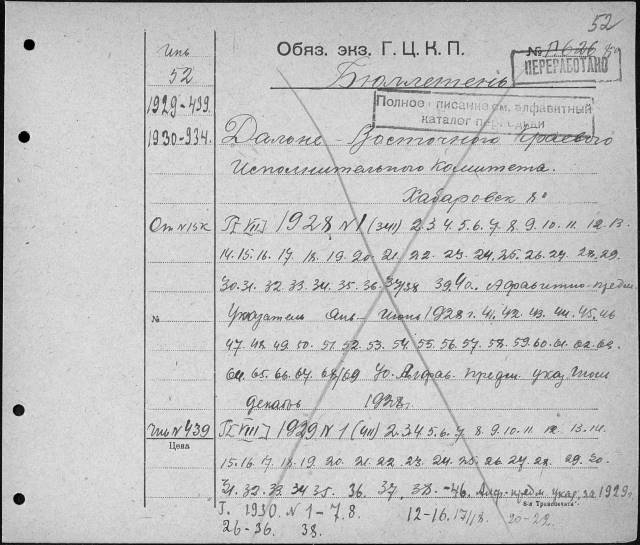 52
Инв
52
1929-439.
1930-934.
Обяз. экз. Г. Ц. К. П.
№ П 626
ПЕРЕРАБОТАНО
Бюллетень
Полное описание см. алфавитный
каталог периодики
Дальне-Восточного Краевого
Исполнительного Комитета.
Хабаровск 8°
1928 №1 (3/VII) 2.3.4.5.6.7.8.9.10.11.12.13.
14.15.16.17.18.19.20.21.22.23.24.25.26.27.28.29.
30.31.32.33.34.35.36.37/38 39.40. Алфавитно-предм.
№
Указатель Янв-Июнь 1928 г. 41.42.43.44.45.46
47.48.49.50.51.52.53.54.55.56.57.58.59.60.61.62.63.
64.65.66.67.68/69 70. Алфав. предм указ Июль
декабрь 1928 г.
Инв № 439
Цена
1929 №1 (4/I) 2.3.4.5.6.7.8.9.10.11.12.13.14.
15.16.17.18.19.20.21.22.23.24.25.26.27.28.29.30.
31.32.33.34.35.36.37.38.-46. Алф.-предм. указ. за 1929 г.
Г. 1930. №1-7.8. 12-16.17/18. 20-22.
26-36. 38.